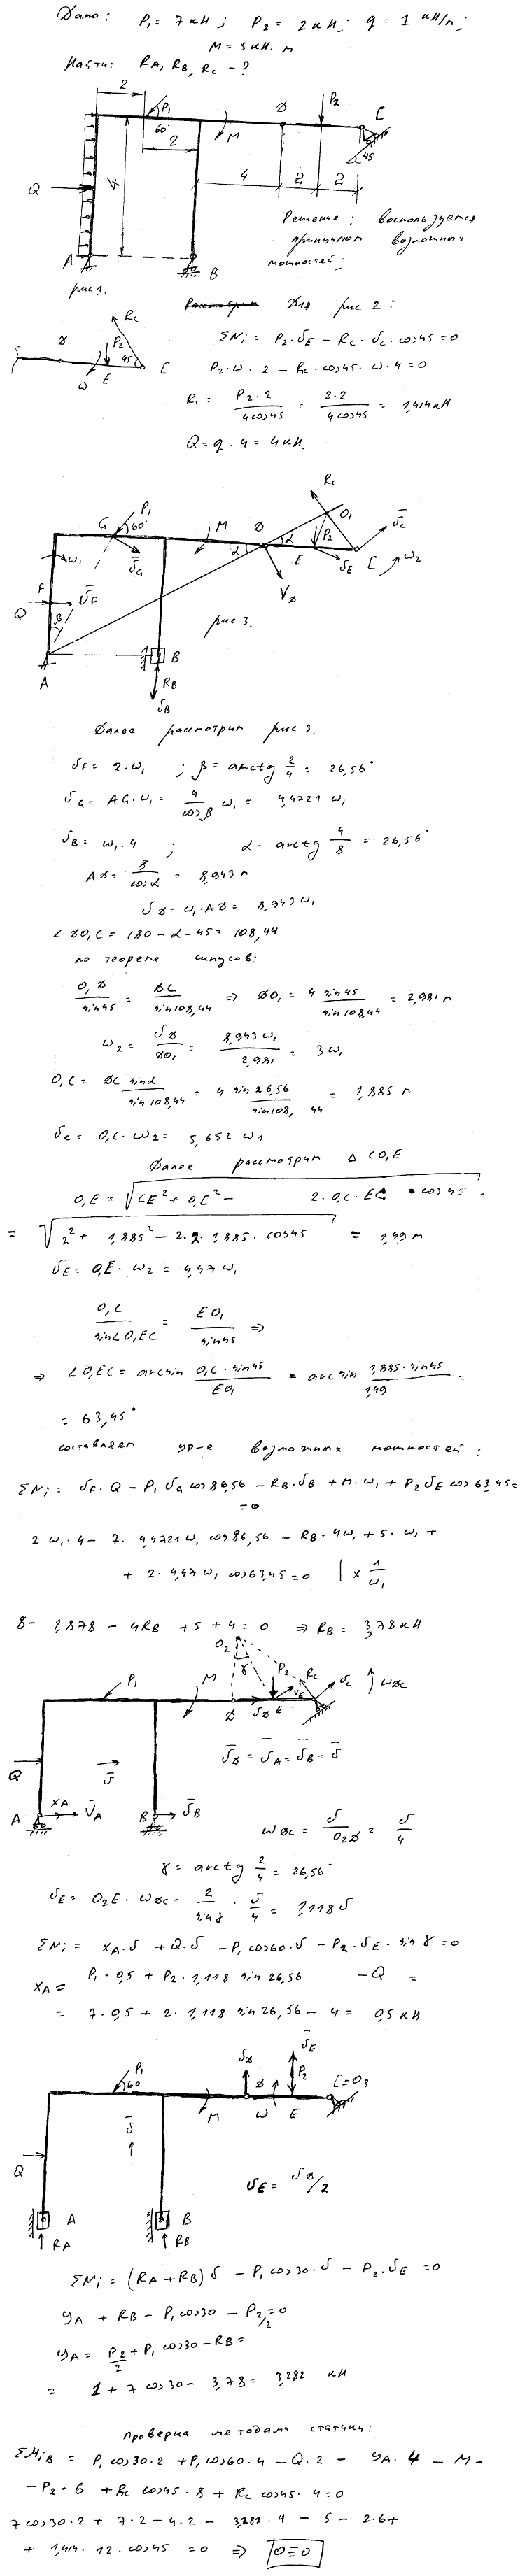 Дано: P₁ = 7 кН; P₂ = 2 кН; q = 1 кН/м;
M = 5 кН·м
Найти: RA, RB, RC - ?
2
P₁
60
2
M
D
P₂
C
45
Q
4
4
2
2
A
B
рис 1.
Решение: воспользуемся
принципом возможных
мощностей:
Для рис 2:
RC
D
P₂
45
C
ω
E
ΣNi = P₂·δE - RC·δC·cos45 = 0
P₂·ω·2 - RC·cos45·ω·4 = 0
RC = P₂·2 / 4cos45 = 2·2 / 4cos45 = 1,414 кН
Q = q·4 = 4 кН.
G
P₁
60°
M
D
RC
O₁
δC
ω₁
δG
α
α
E
P₂
δE
C
ω₂
F
Q
δF
VD
β
рис 3.
A
B
RB
δB
Далее рассмотрим рис 3.
δF = 2·ω₁ ; β = arctg 2/4 = 26,56°
δG = AG·ω₁ = 4/cosβ ω₁ = 4,4721 ω₁
δB = ω₁·4 ; α = arctg 4/8 = 26,56°
AD = 8/cosα = 8,943 м
δD = ω₁·AD = 8,943 ω₁
∠DO₁C = 180 - α - 45 = 108,44
по теореме синусов:
O₁D/sin45 = DC/sin108,44 ⇒ DO₁ = 4 sin45/sin108,44 = 2,981 м
ω₂ = δD/DO₁ = 8,943 ω₁/2,981 = 3ω₁
O₁C = DC sinα/sin108,44 = 4 sin26,56/sin108,44 = 1,885 м
δC = O₁C·ω₂ = 5,652 ω₁
Далее рассмотрим Δ CO₁E
O₁E = √(CE² + O₁C² - 2·O₁C·EC·cos45) =
= √(2² + 1,885² - 2·2·1,885·cos45) = 1,49 м
δE = O₁E·ω₂ = 4,47 ω₁
O₁C/sin∠O₁EC = EO₁/sin45 ⇒
⇒ ∠O₁EC = arcsin O₁C·sin45/EO₁ = arcsin 1,885·sin45/1,49 =
= 63,45°
составляем ур-е возможных мощностей:
ΣNi = δF·Q - P₁δG cos86,56 - RB·δB + M·ω₁ + P₂δE cos63,45 =
= 0
2ω₁·4 - 7·4,4721ω₁ cos86,56 - RB·4ω₁ + 5·ω₁ +
+ 2·4,47ω₁ cos63,45 = 0 | × 1/ω₁
8 - 1,878 - 4RB + 5 + 4 = 0 ⇒ RB = 3,78 кН
O₂
γ
P₁
M
P₂
RC
δC
ωDC
D
δD
E
VE
Q
δ
XA
A
VA
B
δB
δD = δA = δB = δ
ωDC = δ/O₂D = δ/4
γ = arctg 2/4 = 26,56°
δE = O₂E·ωDC = 2/sinγ · δ/4 = 1,118 δ
ΣNi = XA·δ + Q·δ - P₁cos60·δ - P₂·δE·sinγ = 0
XA = P₁·0,5 + P₂·1,118 sin26,56 - Q =
= 7·0,5 + 2·1,118 sin26,56 - 4 = 0,5 кН
P₁
60
δD
δE
P₂
C=O₃
D
M
ω
E
δ
Q
A
B
RA
RB
δE = δD/2
ΣNi = (RA + RB)δ - P₁cos30·δ - P₂·δE = 0
YA + RB - P₁cos30 - P₂/2 = 0
YA = P₂/2 + P₁cos30 - RB =
= 1 + 7cos30 - 3,78 = 3,282 кН
проверка методами статики:
ΣMiB = P₁cos30·2 + P₁cos60·4 - Q·2 - YA·4 - M -
- P₂·6 + RC cos45·8 + RC cos45·4 = 0
7cos30·2 + 7·2 - 4·2 - 3,282·4 - 5 - 2·6 +
+ 1,414·12·cos45 = 0 ⇒ 0 ≡ 0